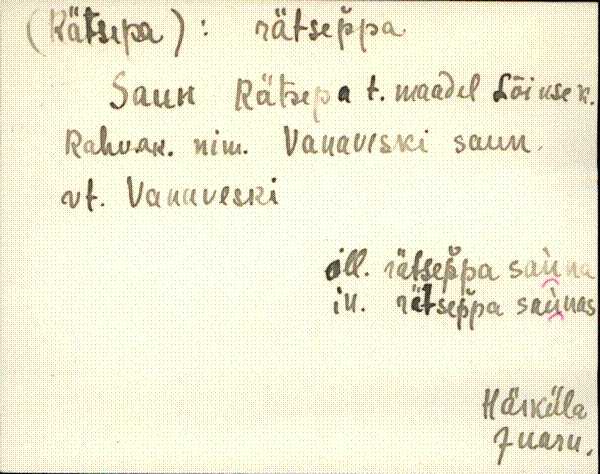 (Rätsepa): rätsep̆pa
Saun Rätsepa t. maadel Lõiuse k.
Rahvak. nim. Vanaveski saun.
vt. Vanaveski
ill. rätsep̆pa sauna
in. rätsep̆pa saunas
Härküla
Juuru.